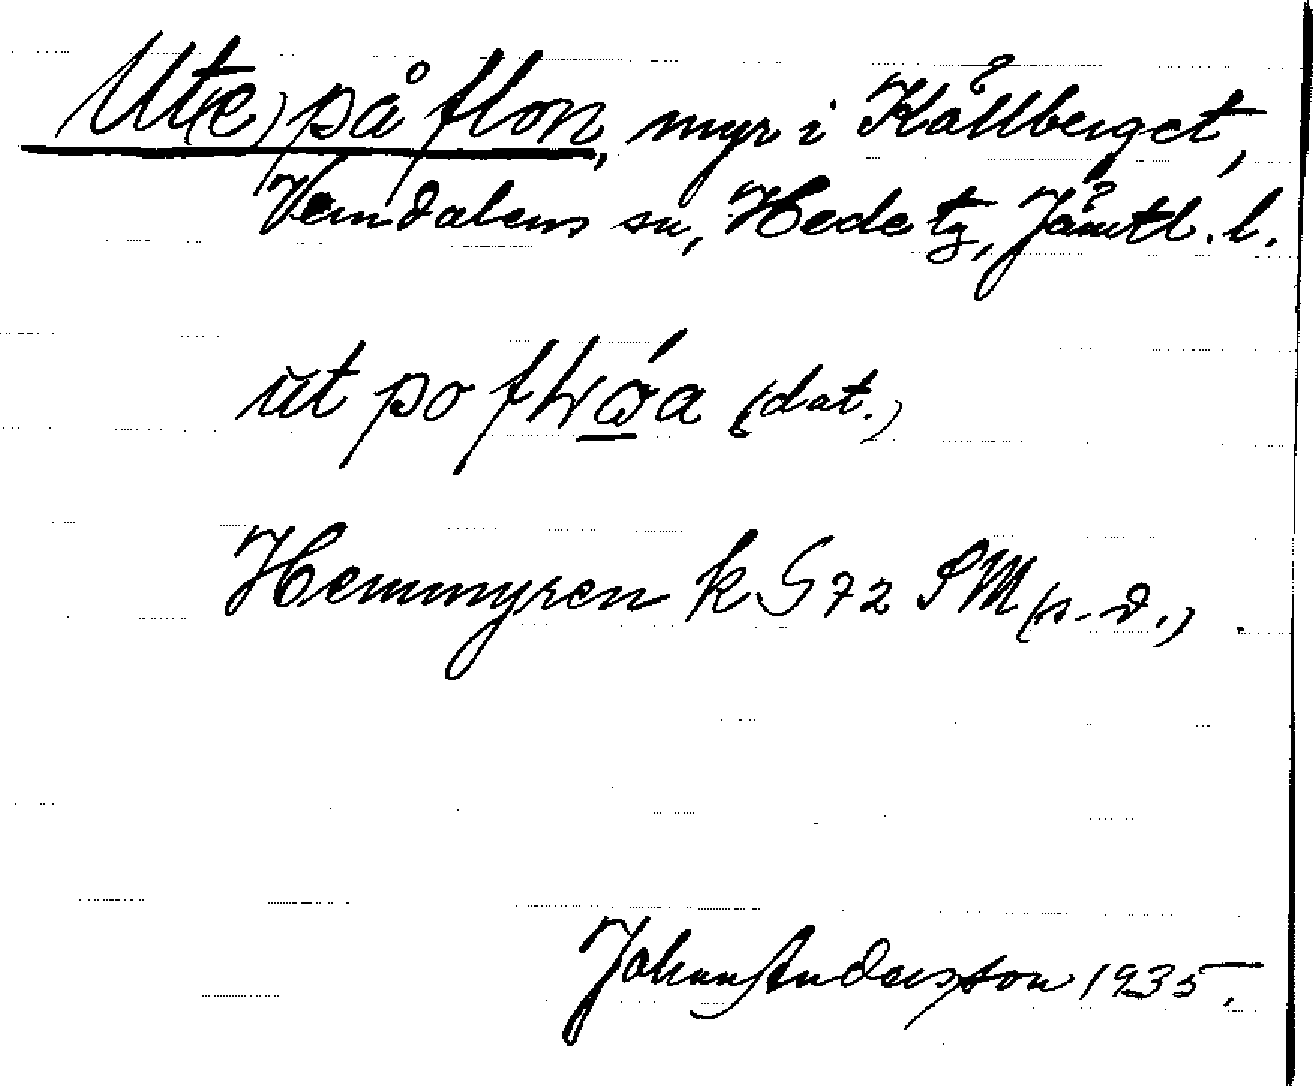 Ut(e) på flon, myr i Kålberget,
Vemdalens sn, Hede tg, Jämtl. l.
ut po (dat.)
Hemmyren k G 72 SM (s. d.).
Johan Andersson 1935.